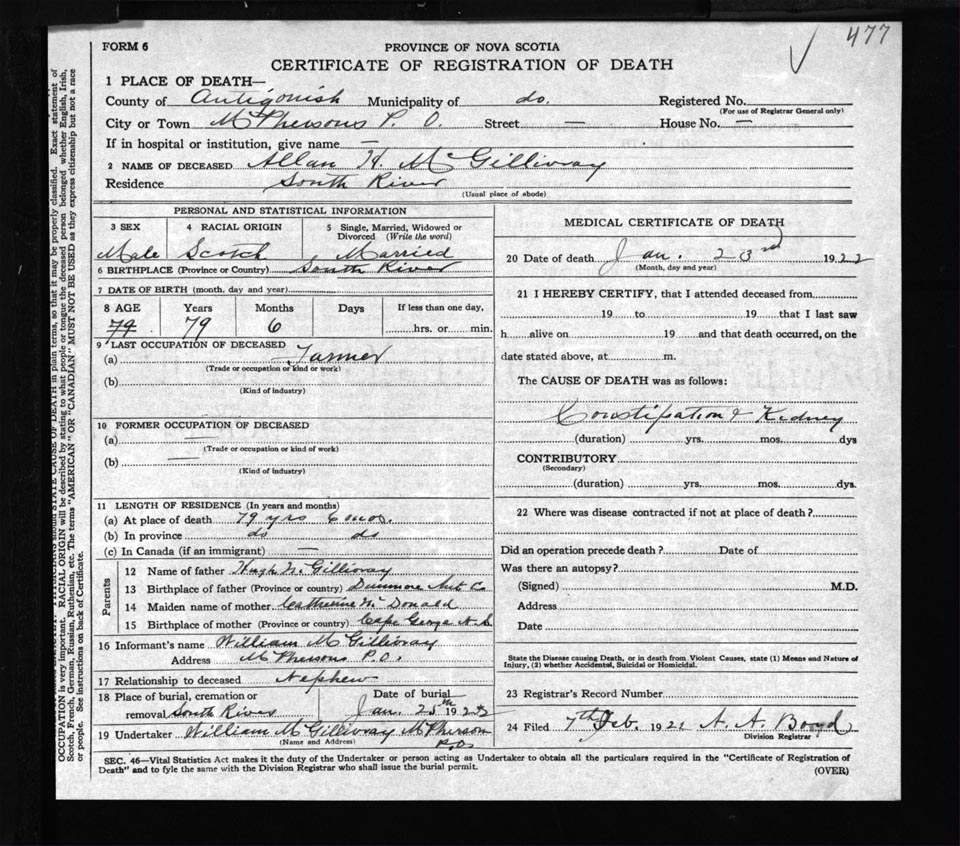 477
FORM 6
PROVINCE OF NOVA SCOTIA
CERTIFICATE OF REGISTRATION OF DEATH
1 PLACE OF DEATH—
County of Antigonish Municipality of do. Registered No.
(For use of Registrar General only)
City or Town McPhersons P. O. Street — House No. —
If in hospital or institution, give name —
2 NAME OF DECEASED Allan H. McGillivray
Residence South River
(Usual place of abode)
PERSONAL AND STATISTICAL INFORMATION
3 SEX 4 RACIAL ORIGIN 5 Single, Married, Widowed or Divorced (Write the word)
Male Scotch Married
6 BIRTHPLACE (Province or Country) South River
7 DATE OF BIRTH (month, day and year)
8 AGE Years Months Days If less than one day,
79 79 6 hrs. or min.
9 LAST OCCUPATION OF DECEASED
(a) Farmer
(Trade or occupation or kind or work)
(b)
(Kind of industry)
10 FORMER OCCUPATION OF DECEASED
(a) —
(Trade or occupation or kind of work)
(b) —
(Kind of industry)
11 LENGTH OF RESIDENCE (In years and months)
(a) At place of death 79 yrs 6 mos.
(b) In province do do
(c) In Canada (if an immigrant) —
Parents
12 Name of father Hugh McGillivray
13 Birthplace of father (Province or country) Dunmore Ant Co
14 Maiden name of mother Catherine McDonald
15 Birthplace of mother (Province or country) Cape George N.S.
16 Informant's name William McGillivray
Address McPhersons P.O.
17 Relationship to deceased Nephew
18 Place of burial, cremation or Date of burial
removal South River Jan. 25th 1922
19 Undertaker William McGillivray McPherson
P.O.
(Name and Address)
MEDICAL CERTIFICATE OF DEATH
20 Date of death Jan. 23rd 1922
(Month, day and year)
21 I HEREBY CERTIFY, that I attended deceased from
19 to 19 that I last saw
h alive on 19 and that death occurred, on the
date stated above, at m.
The CAUSE OF DEATH was as follows:
Constipation & Kidney
(duration) yrs. mos. dys
CONTRIBUTORY
(Secondary)
(duration) yrs. mos. dys.
22 Where was disease contracted if not at place of death?
Did an operation precede death? Date of
Was there an autopsy?
(Signed) M.D.
Address
Date
State the Disease causing Death, or in death from Violent Causes, state (1) Means and Nature of
Injury, (2) whether Accidental, Suicidal or Homicidal.
23 Registrar's Record Number
24 Filed 7th Feb. 1922 A. A. Boyd
Division Registrar
SEC. 46—Vital Statistics Act makes it the duty of the Undertaker or person acting as Undertaker to obtain all the particulars required in the "Certificate of Registration of
Death" and to fyle the same with the Division Registrar who shall issue the burial permit.
(OVER)
STATE CAUSE OF DEATH in plain terms, so that it may be properly classified. Exact statement of
OCCUPATION is very important. RACIAL ORIGIN will be described by stating to what people or tongue the deceased person belonged whether English, Irish,
Scotch, French, German, Russian, Ruthenian, etc. The terms "AMERICAN" OR "CANADIAN" MUST NOT BE USED as they express citizenship but not a race
or people. See instructions on back of Certificate.